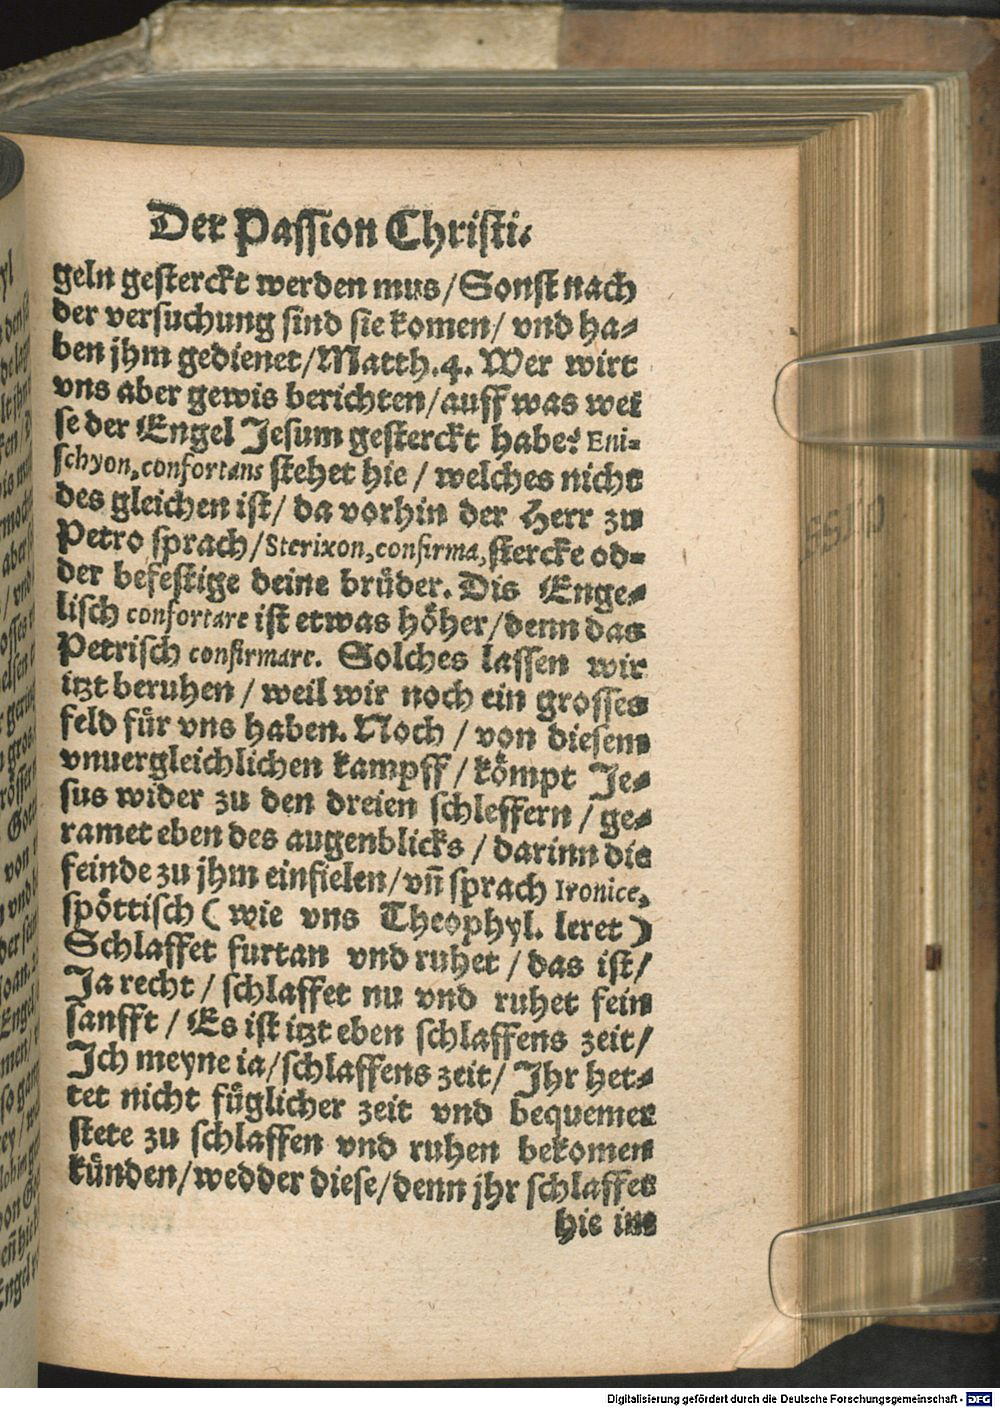 Der Passion Christi.
geln gesterckt werden mus/Sonst nach
der versuchung sind sie komen/ vnd ha⸗
ben jhm gedienet/Matth.4. Wer wirt
vns aber gewis berichten/auff was wei
se der Engel Jesum gesterckt habe? Eni⸗
schyon,confortans stehet hie / welches nicht
des gleichen ist/ da vorhin der Herr zu
Petro sprach/Sterixon,confirma,stercke od⸗
der befestige deine brüder. Dis Enge⸗
lisch confortare ist etwas höher/denn das
Petrisch confirmare. Solches lassen wir
itzt beruhen / weil wir noch ein grosses
feld für vns haben. Noch / von diesem
vnuergleichlichen kampff / kömpt Je⸗
sus wider zu den dreien schleffern / ge⸗
ramet eben des augenblicks / darinn die
feinde zu jhm einfielen/vn̄ sprach Ironice,
spöttisch ( wie vns Theophyl. leret )
Schlaffet furtan vnd ruhet / das ist/
Ja recht / schlaffet nu vnd ruhet fein
sanfft / Es ist itzt eben schlaffens zeit/
Ich meyne ia/schlaffens zeit/ Jhr het⸗
tet nicht füglicher zeit vnd bequemer
stete zu schlaffen vnd ruhen bekomen
künden/wedder diese/denn jhr schlaffet
hie ins
Digitalisierung gefördert durch die Deutsche Forschungsgemeinschaft - DFG